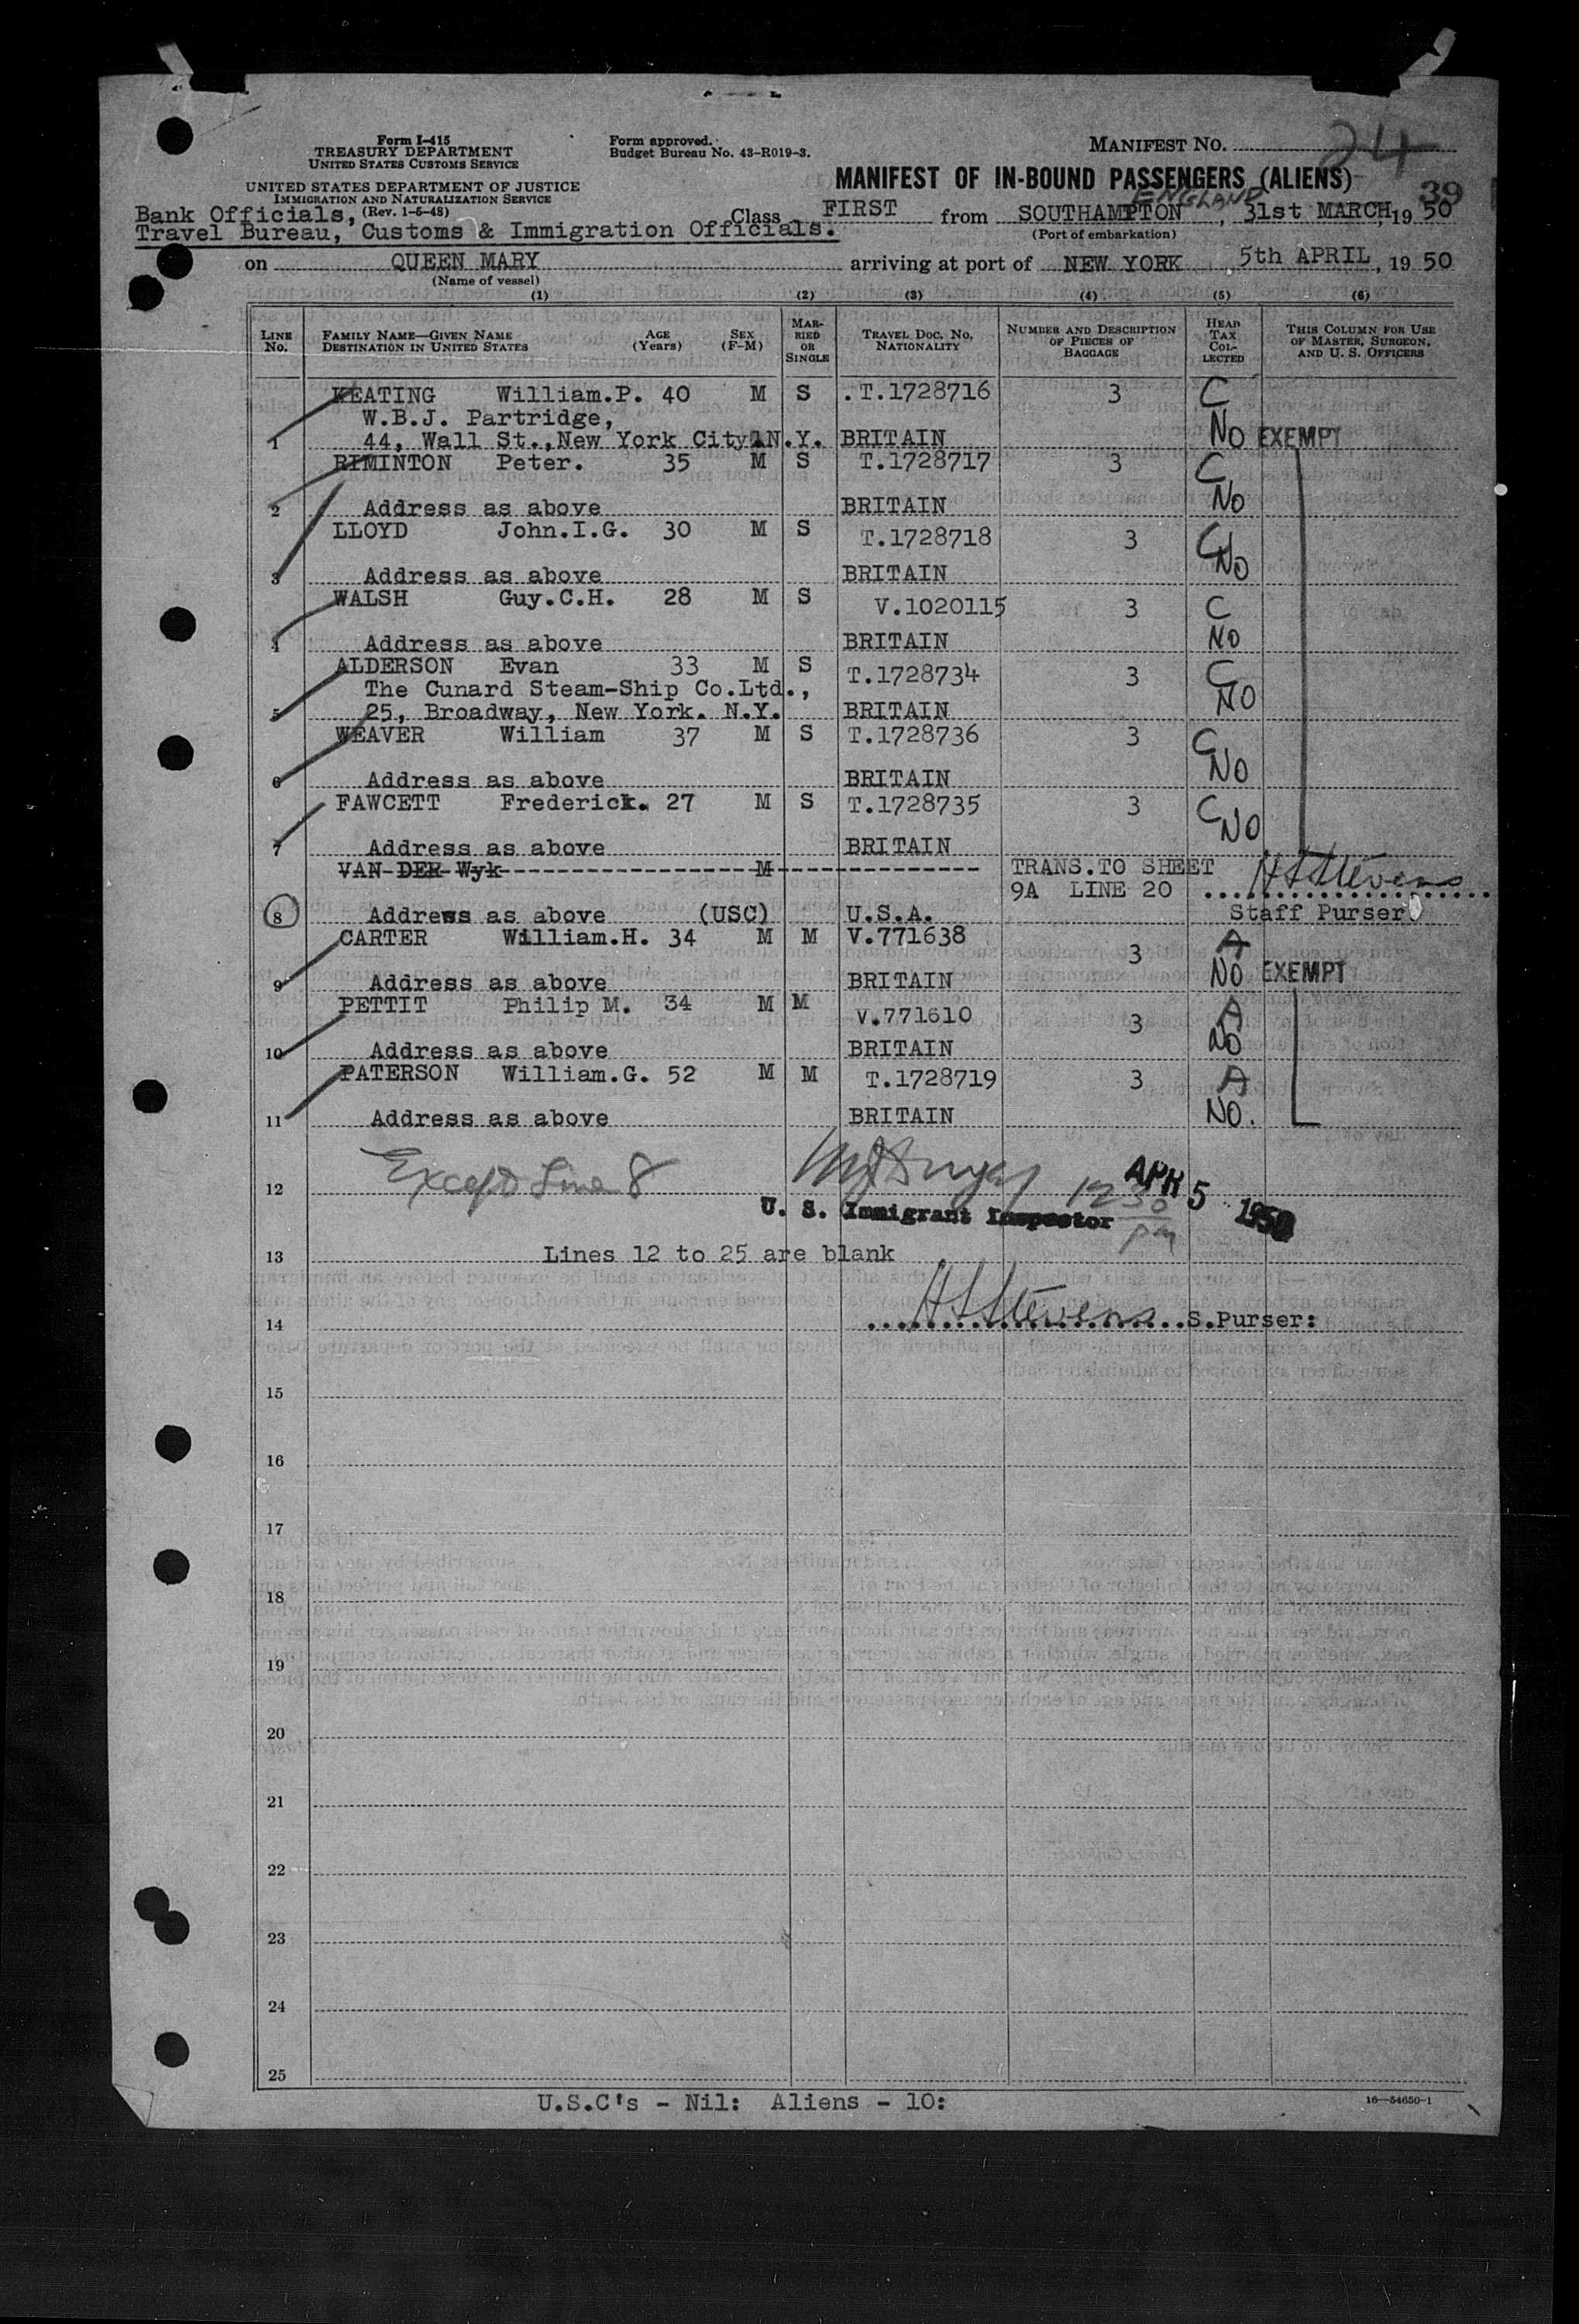 Form I-415
TREASURY DEPARTMENT
UNITED STATES CUSTOMS SERVICE
Form approved.
Budget Bureau No. 43-R019-3.
MANIFEST NO. 24
UNITED STATES DEPARTMENT OF JUSTICE
IMMIGRATION AND NATURALIZATION SERVICE
(Rev. 1-5-48)
MANIFEST OF IN-BOUND PASSENGERS (ALIENS)
39
ENGLAND
Bank Officials,
Travel Bureau, Customs & Immigration Officials.
Class FIRST from SOUTHAMPTON, 31st MARCH, 19 50
(Port of embarkation)
on QUEEN MARY arriving at port of NEW YORK 5th APRIL, 19 50
(Name of vessel)
(1) (2) (3) (4) (5) (6)
LINE No. FAMILY NAME—GIVEN NAME DESTINATION IN UNITED STATES AGE (Years) SEX (F-M) MARRIED OR SINGLE TRAVEL DOC. NO. NATIONALITY NUMBER AND DESCRIPTION OF PIECES OF BAGGAGE HEAD TAX COLLECTED THIS COLUMN FOR USE OF MASTER, SURGEON, AND U. S. OFFICERS
KEATING William.P. 40 M S .T.1728716 3 C
W.B.J. Partridge,
1 44, Wall St.,New York City N.Y. BRITAIN NO EXEMPT
RIMINTON Peter. 35 M S T.1728717 3 C
2 Address as above BRITAIN NO
LLOYD John.I.G. 30 M S T.1728718 3 C
3 Address as above BRITAIN NO
WALSH Guy.C.H. 28 M S V.1020115 3 C
4 Address as above BRITAIN NO
ALDERSON Evan 33 M S T.1728734 3 C
The Cunard Steam-Ship Co.Ltd.,
5 25, Broadway, New York. N.Y. BRITAIN NO
WEAVER William 37 M S T.1728736 3 C
6 Address as above BRITAIN NO
FAWCETT Frederick. 27 M S T.1728735 3 C
7 Address as above BRITAIN NO
VAN DER Wyk M TRANS.TO SHEET
9A LINE 20 HLStevens
8 Address as above (USC) U.S.A. Staff Purser
CARTER William.H. 34 M M V.771638 3 A
9 Address as above BRITAIN NO EXEMPT
PETTIT Philip M. 34 M M V.771610 3 A
10 Address as above BRITAIN NO
PATERSON William.G. 52 M M T.1728719 3 A
11 Address as above BRITAIN NO.
12 Except Line 8 12 30 pm APR 5 1950
U. S. Immigrant Inspector
13 Lines 12 to 25 are blank
14 HLStevens S.Purser:
15
16
17
18
19
20
21
22
23
24
25
U.S.C's - Nil: Aliens - 10:
16—54650-1